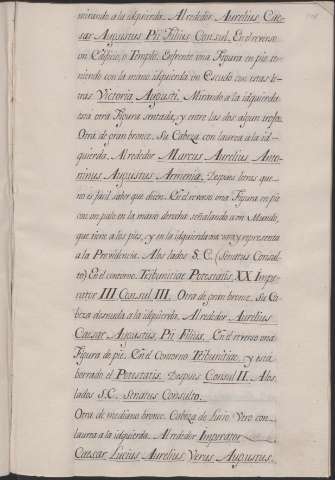 mirando, a la idquierda. Al rededor Aurelius Cae-
sar Augustus Pii Filius Consul. En el reverso
un Edificio, o Templo. Enfrente una Figura en pie, te-
niendo con la mano idquierda un Escudo con estas le-
tras Victoria Augusti. Mirando a la idquierda
otra Figura sentada, y entre las dos algun trofeo.
Otra de gran bronce. Su Cabeza con laurea a la id-
quierda. Al rededor Marcus Aurelius Anto-
ninus Augustus Armenia. Despues letras que
no es facil saber que dicen. En el reverso una Figura en pie
con un palo en la mano derecha señalando a un Mundo,
que tiene a los pies, y en la idquierda una vara, y representa
a la Providencia. A los lados S. C. (Senatus Consul-
to) En el contorno Tribunitiae Potestatis XX Impe-
rator III Consul III. Otra de gran bronce. Su Ca-
beza desnuda a la idquierda. Al rededor Aurelius
Caesar Augustus, Pii Filius. En el reverso una
Figura de pie. En el Contorno Tribunitiae, y está
borrado el Potestatis. Despues Consul II. A los
lados S. C. Senatus Consulto.
Otra de mediano bronce. Cabeza de Lucio Vero con
laurea a la idquierda. Al rededor Imperator
Caesar, Lucius Aurelius Verus Augustus.